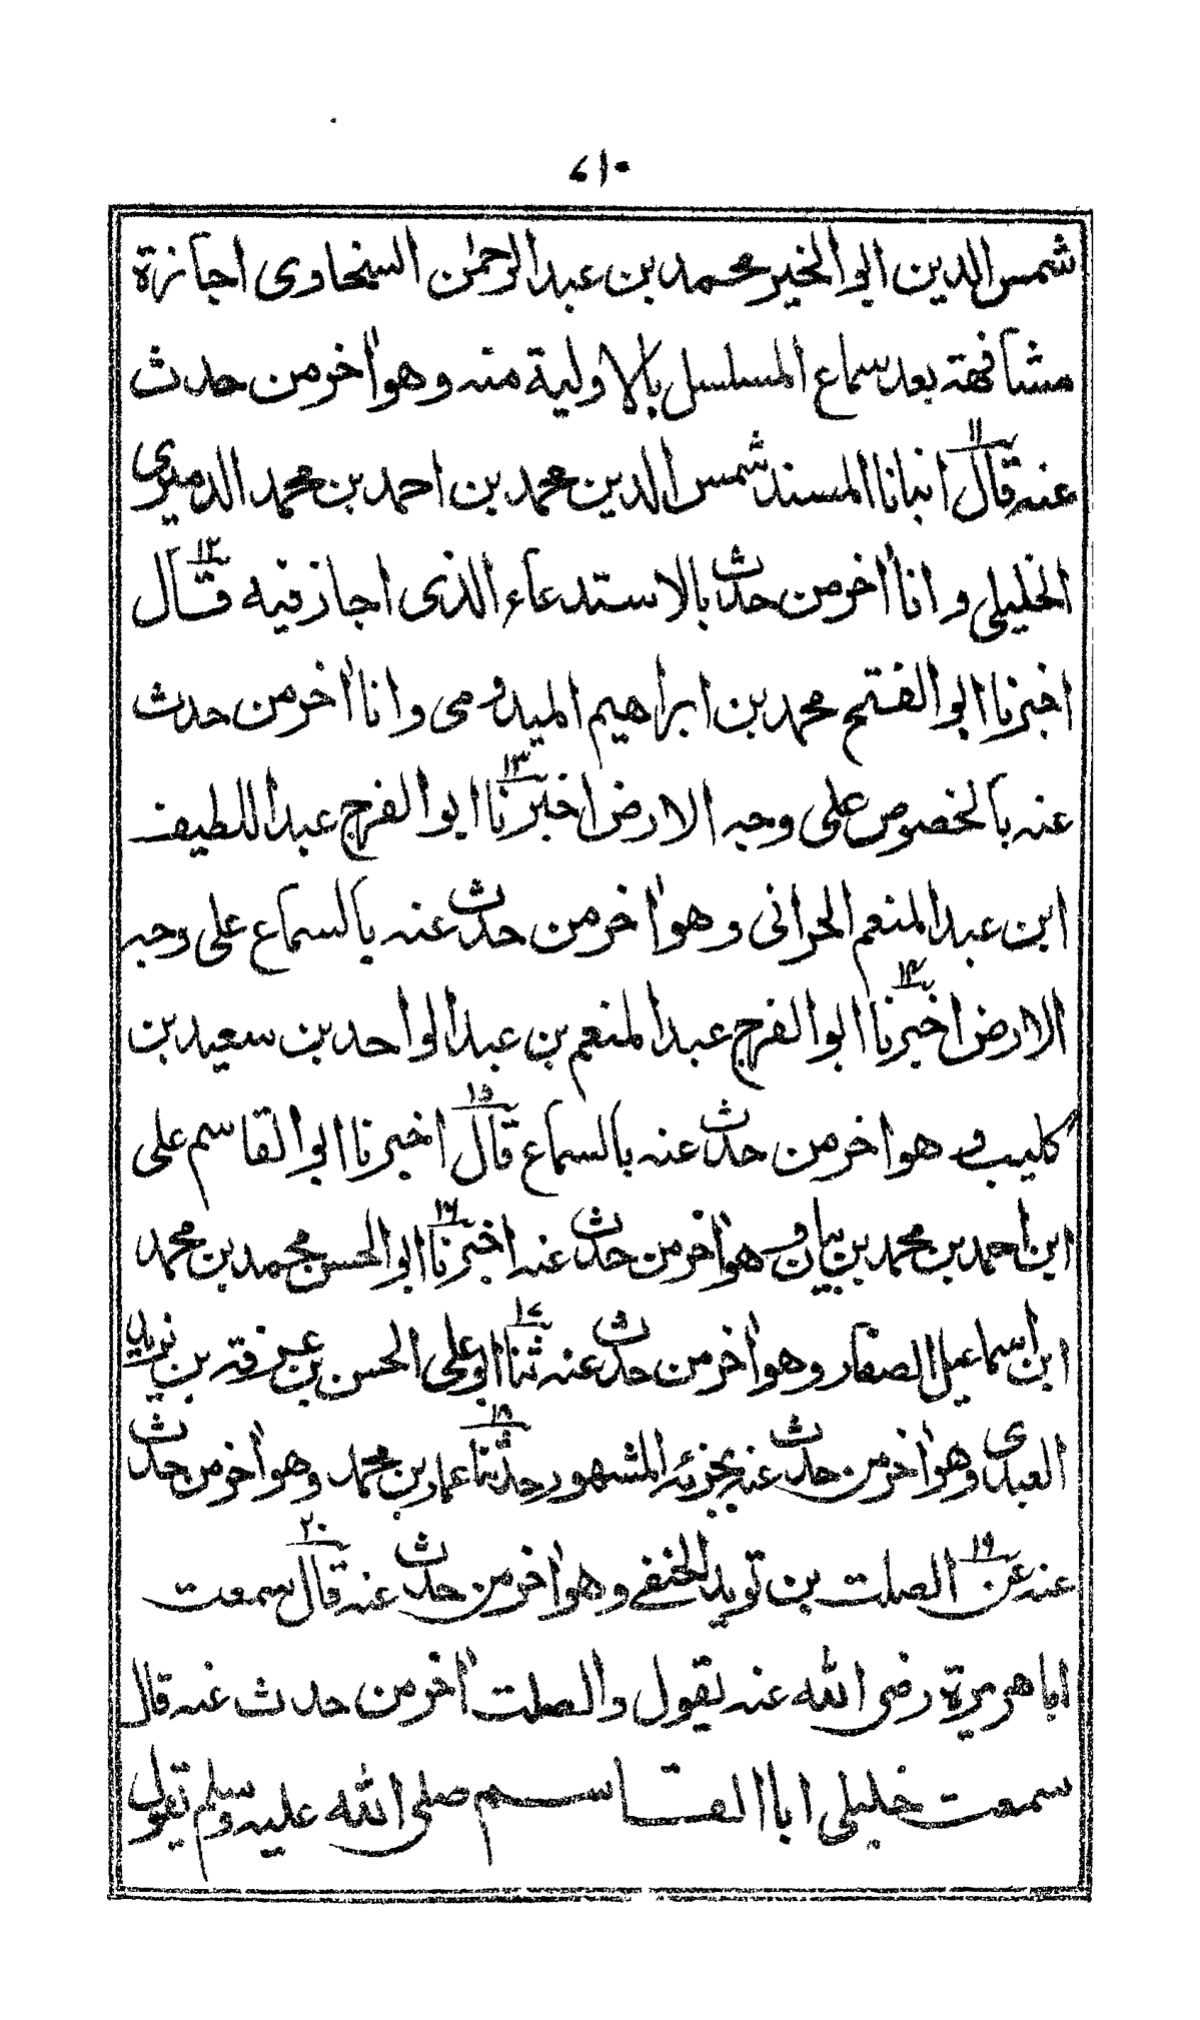 ٧١٠
شمس الدين ابو الخير محمد بن عبد الرحمن السخاوى اجازة
مشافهة بعد سماع المسلسل بالاولية منه وهو اٰخر من حدث
عنه قال ١١ انبانا المسند شمس الدين محمد بن احمد بن محمد الدميرى
الخليلى وانا اٰخر من حدث بالاستدعاء الذى اجاز فيه قال ١٢
اخبرنا ابو الفتح محمد بن ابراهيم الميدومى وانا اٰخر من حدث
عنه بالخصوص على وجه الارض اخبرنا ١٣ ابو الفرج عبد اللطيف
ابن عبد المنعم الحرانى وهو اٰخر من حدث عنه بالسماع على وجه
الارض اخبرنا ١٤ ابو الفرج عبد المنعم بن عبد الواحد بن سعيد بن
كليب وهو اخر من حدث عنه بالسماع قال ١٥ اخبرنا ابو القاسم على
ابن احمد بن محمد بن بيان وهو اٰخر من حدث عنه اخبرنا ١٦ ابو الحسن محمد بن محمد
ابن اسماعيل الصفار وهو اٰخر من حدث عنه ثنا ١٧ ابو على الحسن بن عرفة بن يزيد
العبدى وهو اٰخر من حدث عنه بجزئه المشهور حدثنا ١٨ عمار بن محمد وهو اٰخر من حدث
عنه عن ١٩ الصلت بن قويد الحنفے وهو اٰخر من حدث عنه قال ٢٠ سمعت
ابا هريرة رضى الله عنه يقول والصلت اٰخر من حدث عنه قال
سمعت خليلى ابا القاسم صلى الله عليه وسلم يقول